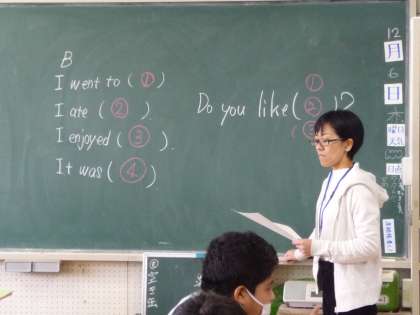 B
I went to (①)
I ate (②).
I enjoyed (③).
It was (④).
①
Do you like(②)?
(③
12
月
6
日
木
曜日
天気
日直